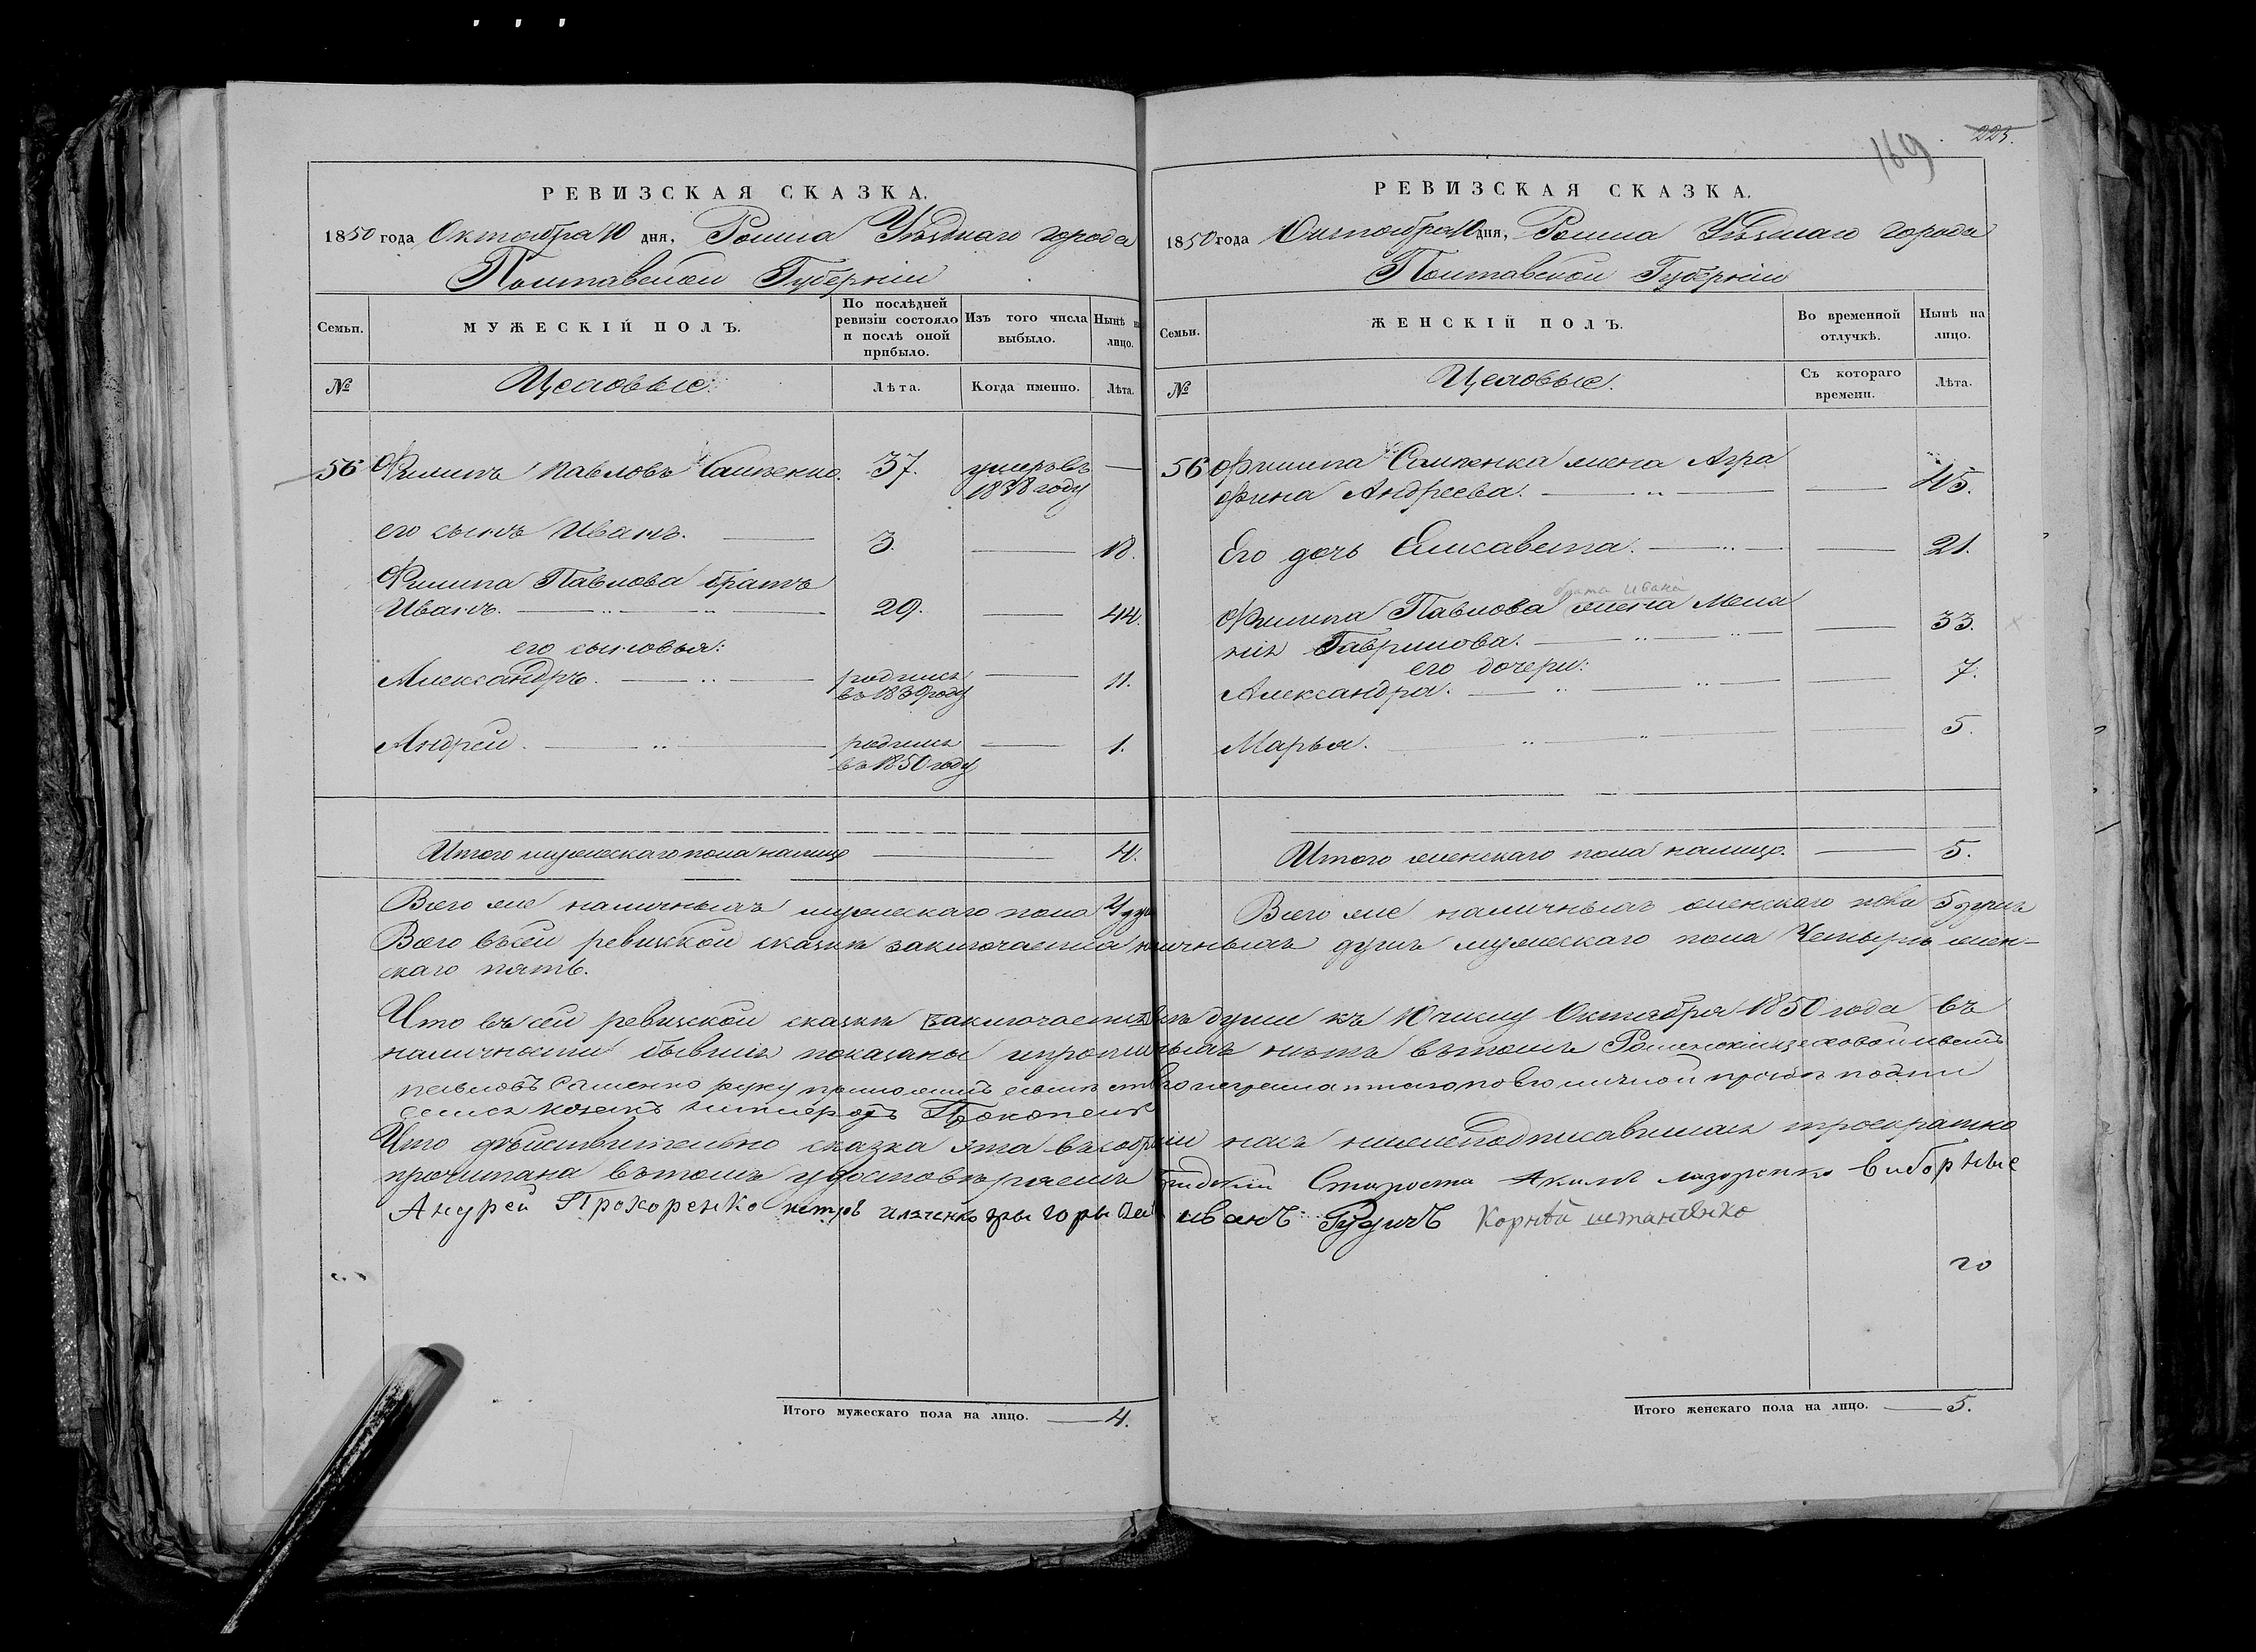 169
223.
РЕВИЗСКАЯ СКАЗКА.
1850 года Октября 10 дня, Ромна Уѣзднаго города
Полтавской Губерніи
Семьи.
МУЖЕСКІЙ ПОЛЪ.
По послѣдней ревизіи состояло и послѣ оной прибыло.
Изъ того числа выбыло.
Нынѣ на лицо.
№
Цеховые.
Лѣта.
Когда именно.
Лѣта.
56 Филипъ Павловъ Сашенко. 37. умеръ въ 1838 году —
его сынъ Иванъ. — 3. — 18.
Филипа Павлова братъ
Иванъ. — 29. — 44.
его сыновья:
Александръ. — родился въ 1839 году — 11.
Андрей. — родился въ 1850 году — 1.
Итого мужескаго пола налицо — 4.
Всего же наличныхъ мужескаго пола 4 душ
РЕВИЗСКАЯ СКАЗКА.
1850 года Октября 10 дня, Ромна Уѣзднаго города
Полтавской Губерніи
Семьи.
ЖЕНСКІЙ ПОЛЪ.
Во временной отлучкѣ.
Нынѣ на лицо.
№
Цеховые.
Съ котораго времени.
Лѣта.
56 Филипа Сашенка жена Агра
фина Андреева. — 45.
Его дочь Елисавета. — 21.
брата Ивана
Филипа Павлова жена Мела
нія Гаврилова. — 33.
его дочери:
Александра. — 7.
Марья. — 5.
Итого женскаго пола налицо. — 5.
Всего же наличныхъ женскаго пола 5 душъ
Всего въ сей ревизской сказкѣ заключается наличныхъ душъ мужескаго пола Четыре жен-
скаго пять.
Что въ сей ревизской сказкѣ заключается всѣ души къ 10 числу Октября 1850 года въ
наличности бывшія показаны и прописныхъ нѣтъ въ томъ Роменскій цеховой Иванъ
Павловъ Сашенко руку приложилъ
Что дѣйствительно сказка эта въ собраніи насъ нижеподписавшихся троекратно
прочитана въ томъ удостовѣряемъ Градскій Староста Акимъ Лазоренко виборные
Андрей Прохоренко Петръ Иванъ Рудичъ Корнѣй
20
Итого мужескаго пола на лицо. — 4.
Итого женскаго пола на лицо. — 5.